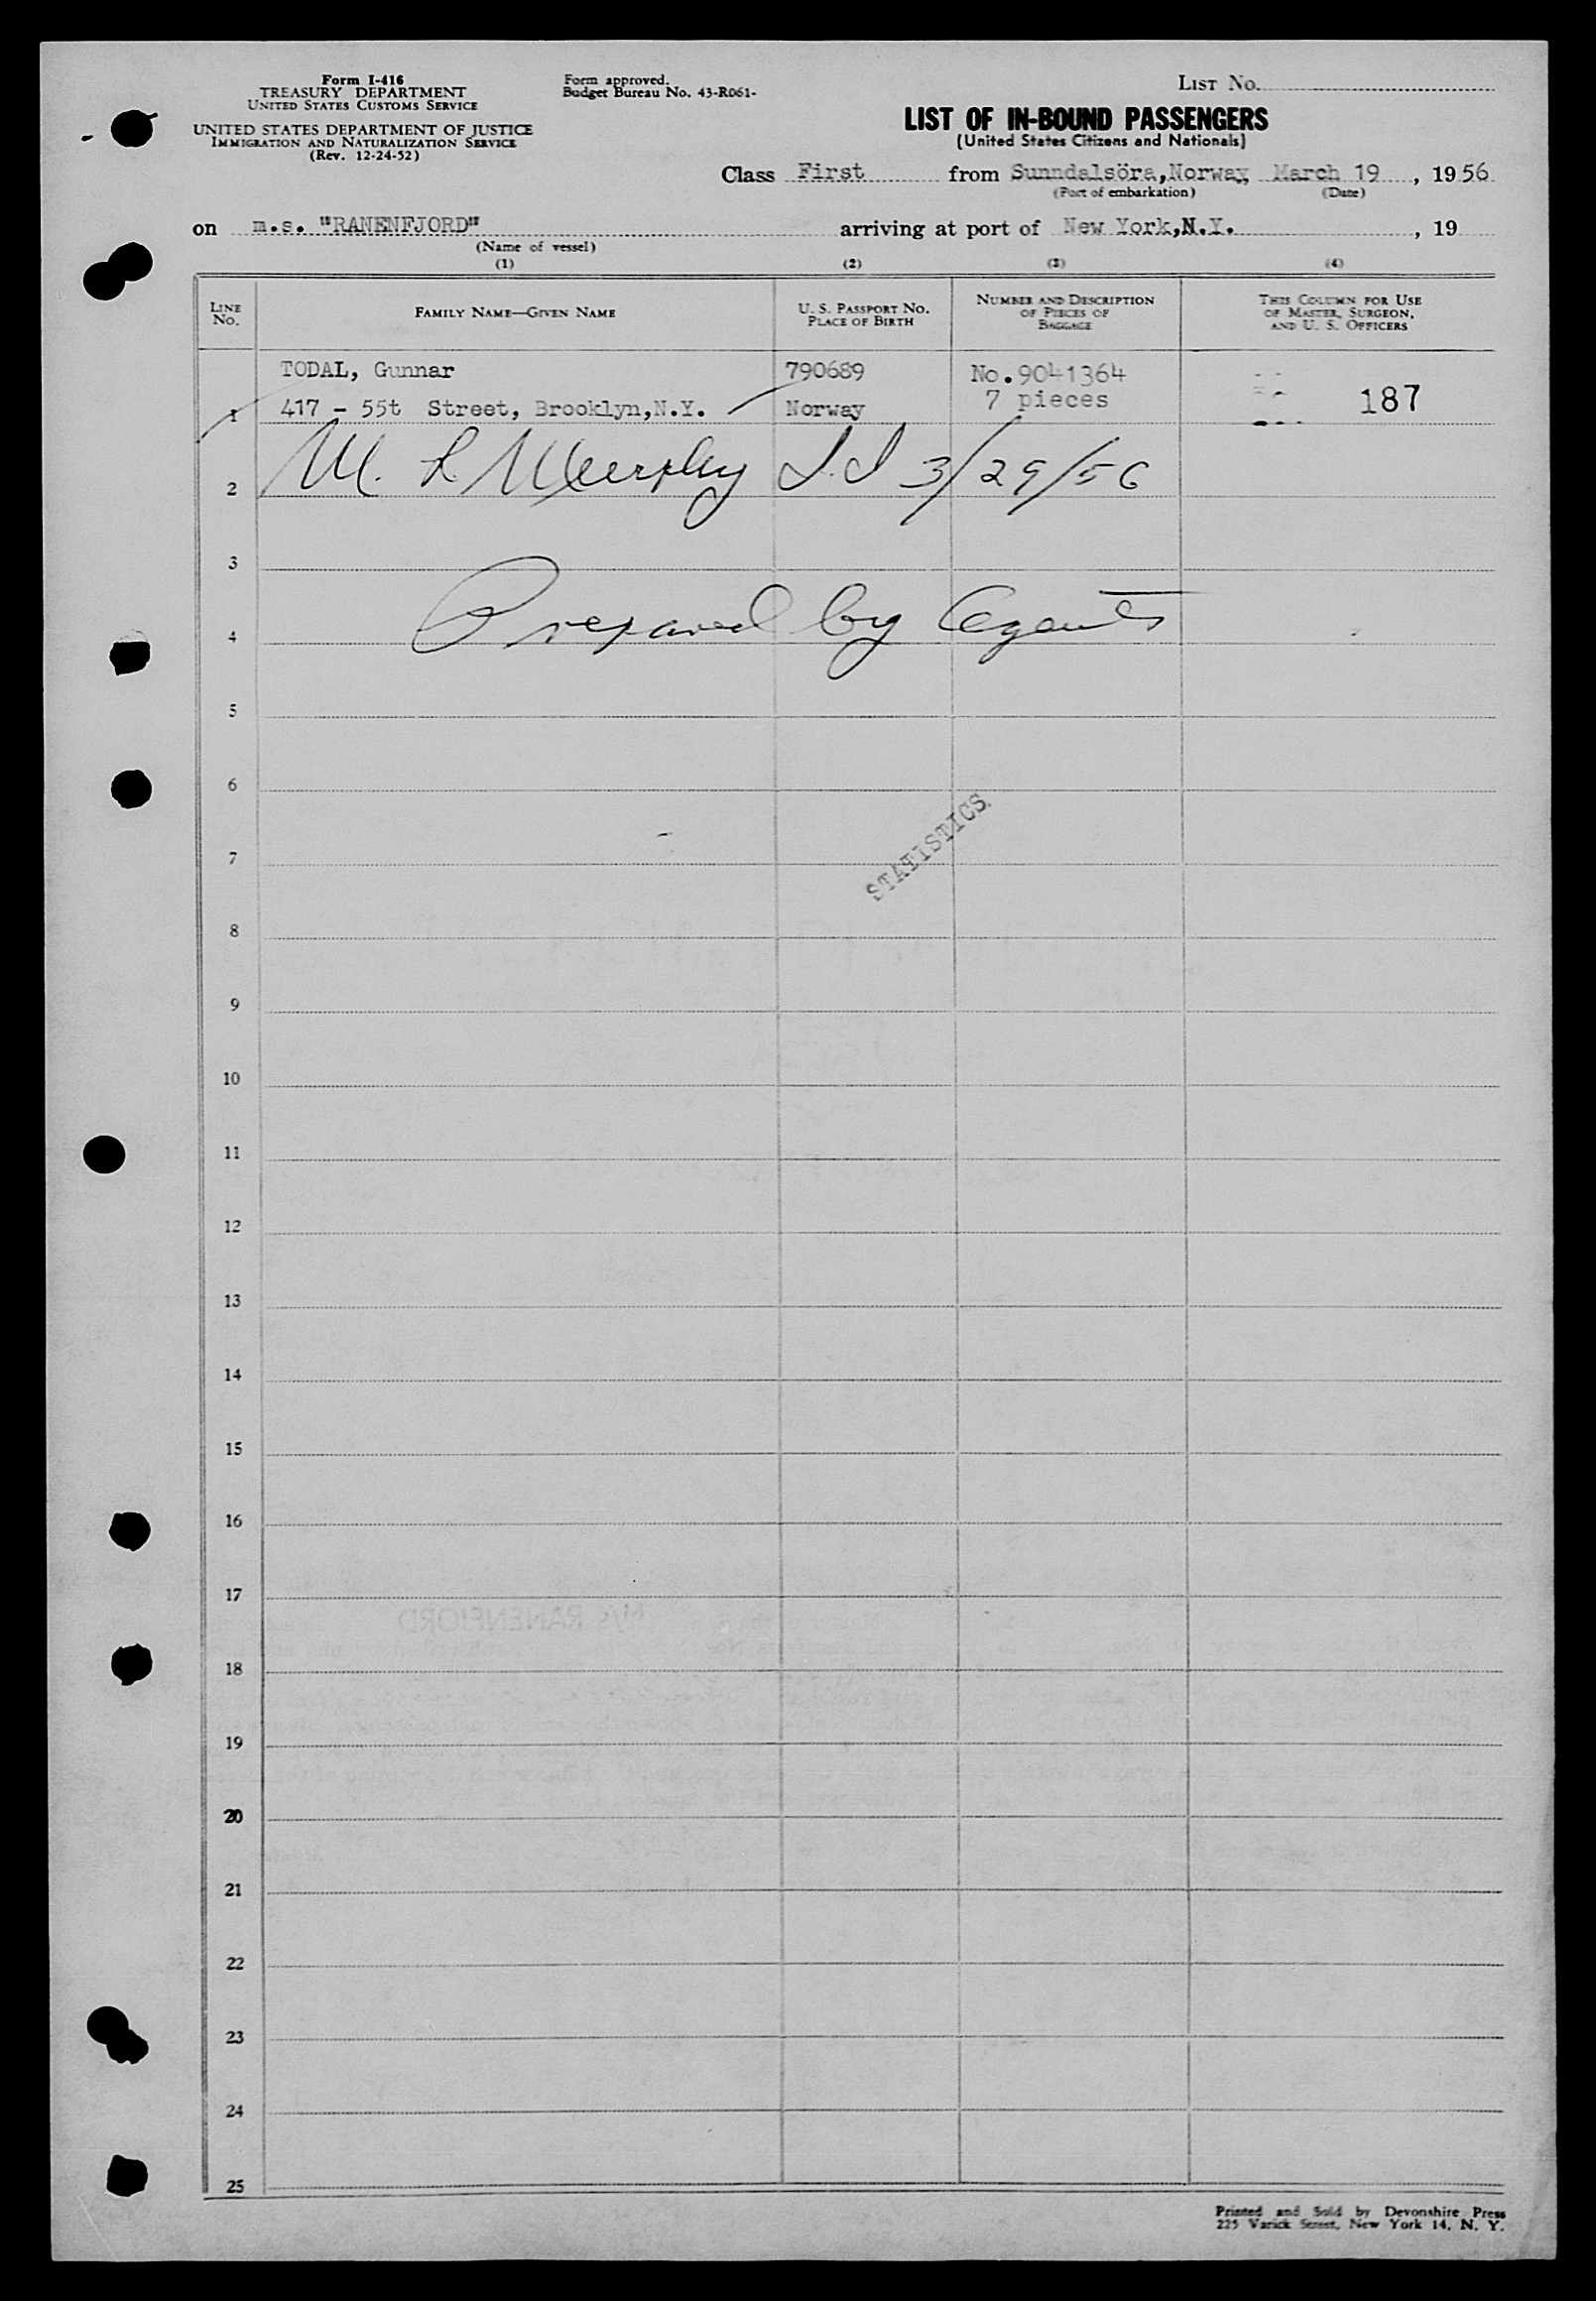 Form I-416
TREASURY DEPARTMENT
UNITED STATES CUSTOMS SERVICE
UNITED STATES DEPARTMENT OF JUSTICE
IMMIGRATION AND NATURALIZATION SERVICE
(Rev. 12-24-52)
Form approved.
Budget Bureau No. 43-R061-
LIST No.
LIST OF IN-BOUND PASSENGERS
(United States Citizens and Nationals)
Class First from Sunndalsöra, Norway, March 19, 1956
(Port of embarkation) (Date)
on m.s. "RANENFJORD" arriving at port of New York, N.Y., 19
(Name of vessel)
(1) (2) (3) (4)
LINE No. FAMILY NAME—GIVEN NAME U. S. PASSPORT No. PLACE OF BIRTH NUMBER AND DESCRIPTION OF PIECES OF BAGGAGE THIS COLUMN FOR USE OF MASTER, SURGEON, AND U. S. OFFICERS
TODAL, Gunnar 790689 No.9041364
1 417 - 55t Street, Brooklyn, N.Y. Norway 7 pieces 187
2 M. L Murphy I.I 3/29/56
3
4 Prepared by Agents
5
6
STATISTICS
7
8
9
10
11
12
13
14
15
16
17
18
19
20
21
22
23
24
25
Printed and Sold by Devonshire Press
225 Varick Street, New York 14, N. Y.